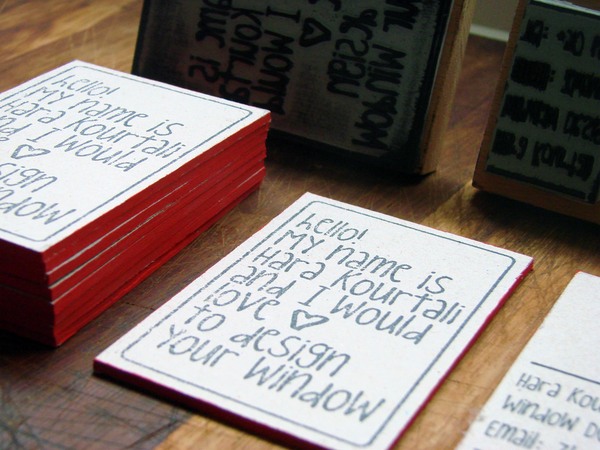 hello!
My name is
Hara Kourtali
and I would
love
to design
your window
hello!
My name is
Hara Kourtali
and I would
sign
window
Hara Kou
Window D
Email: